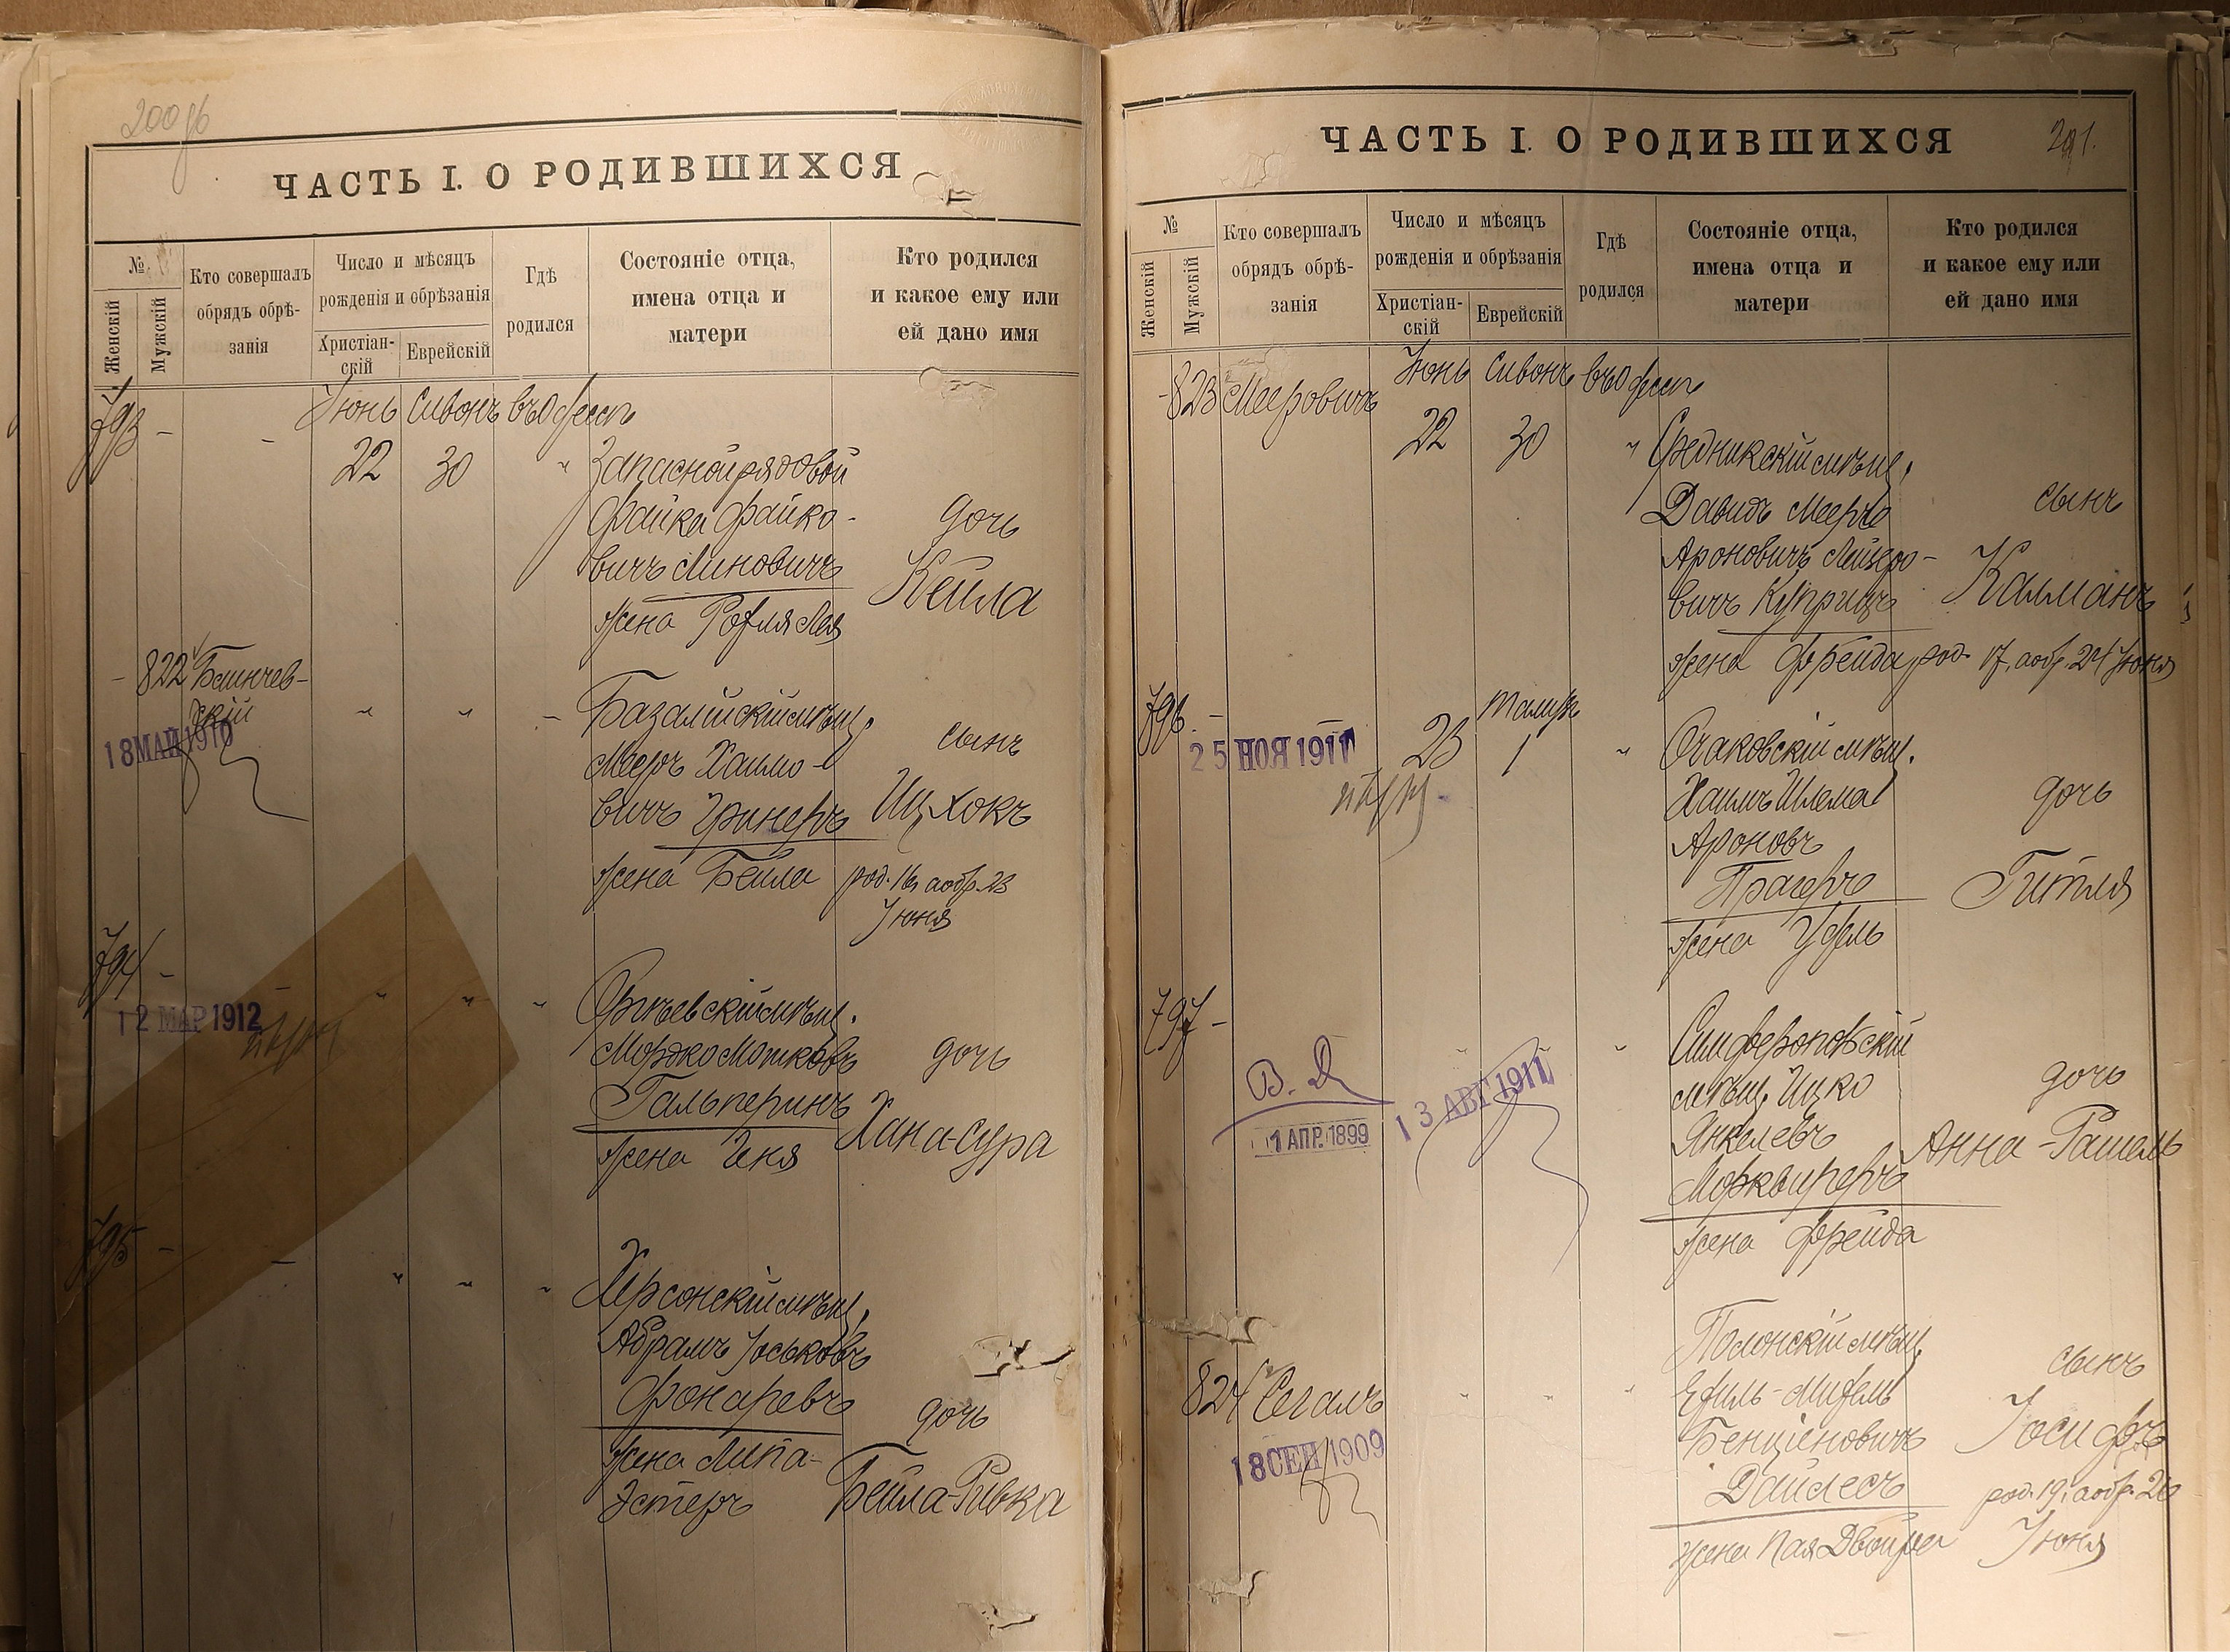 200 об
ЧАСТЬ I. О РОДИВШИХСЯ
№
Женскій
Мужскій
Кто совершалъ
обрядъ обрѣ-
занія
Число и мѣсяцъ
рожденія и обрѣзанія
Христіан-
скій
Еврейскій
Гдѣ
родился
Состояніе отца,
имена отца и
матери
Кто родился
и какое ему или
ей дано имя
Іюнь Сивонъ въ Одессѣ
793 - - 22 30 " Запасной рядовой
Файка Файко-
вичъ Линовичъ
жена Рохля Лея
дочь
Кейла
- 822
скій
18 МАЙ 1910
" " - Базалійскій мѣщ.
Мееръ Хаимо-
вичъ Гринеръ
жена Бейла
сынъ
Ицхокъ
род. 16, а обр. 23
Іюня
794 -
12 МАР 1912
" " " Оргѣевскій мѣщ.
Мордко Мотковъ
Гальперинъ
жена Геня
дочь
Хана-Сура
795 - - " " " Херсонскій мѣщ.
Абрамъ Іоськовъ
Фонаревъ
жена Липа-
Эстеръ
дочь
Бейла-Ривка
ЧАСТЬ I. О РОДИВШИХСЯ
201.
№
Женскій
Мужскій
Кто совершалъ
обрядъ обрѣ-
занія
Число и мѣсяцъ
рожденія и обрѣзанія
Христіан-
скій
Еврейскій
Гдѣ
родился
Состояніе отца,
имена отца и
матери
Кто родился
и какое ему или
ей дано имя
Іюнь Сивонъ въ Одессѣ
- 823 Мееровичъ 22 30 " Средникскій мѣщ.
Давидъ Мееръ
Ароновичъ Лейзеро-
вичъ Куприцъ
жена Фрейда
сынъ
Калманъ
род. 17, а обр. 24 Іюня
Тамузъ
796 -
25 НОЯ 1911
23 1 " Очаковскій мѣщ.
Хаимъ Шлема
Ароновъ
Прагеръ
жена Удель
дочь
Гитля
797 -
В. Д.
1 АПР. 1899
13 АВГ 1911
" Симферопольскій
мѣщ. Ицко
Янкелевъ
жена Фрейда
дочь
Анна-Рашель
824 Сегалъ " " " Полонскій мѣщ.
18 СЕН 1909
Бенціоновичъ
Дайлесъ
жена Пая Двойра
сынъ
Іосифъ
род. 19, а обр. 26
Іюня